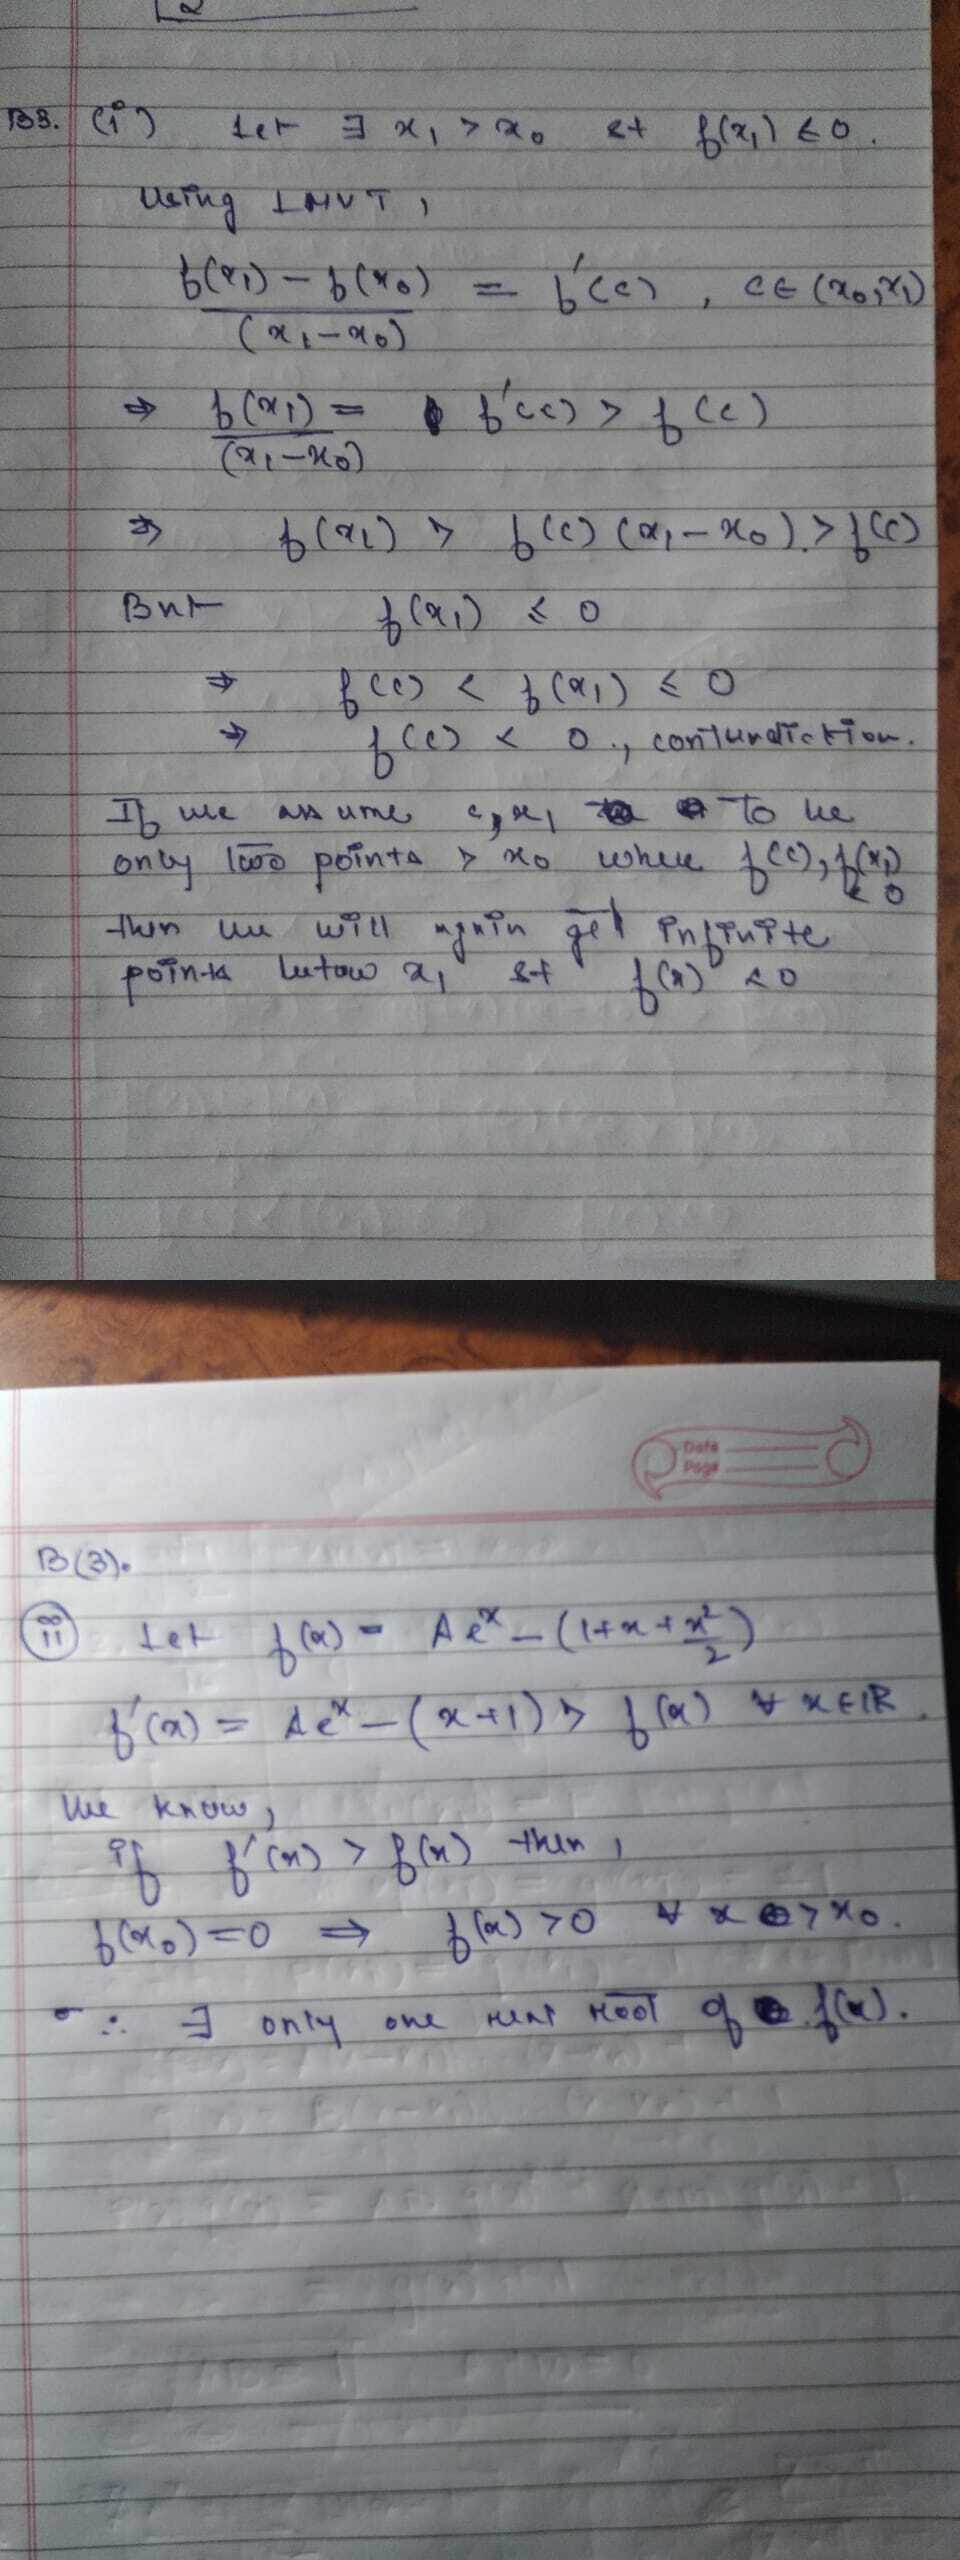 B3. (i) Let ∃ x₁ > x₀ st f(x₁) ≤ 0.
Using LMVT,
f(x₁) - f(x₀) / (x₁ - x₀) = f'(c), c ∈ (x₀, x₁)
⇒ f(x₁) / (x₁ - x₀) = f'(c) > f(c)
⇒ f(x₁) > f(c) (x₁ - x₀) > f(c)
But f(x₁) ≤ 0
⇒ f(c) < f(x₁) ≤ 0
⇒ f(c) < 0., contradiction.
If we assume c, x₁ to be
only two points > x₀ where f(c), f(x₁)
< 0
then we will again get infinite
points below x₁ st f(x) < 0
Date
Page
B(3).
(ii) Let f(x) = Ae^x - (1 + x + x²/2)
f'(x) = Ae^x - (x+1) > f(x) ∀ x ∈ IR.
We know,
if f'(x) > f(x) then,
f(x₀) = 0 ⇒ f(x) > 0 ∀ x > x₀.
∴ ∃ only one real root of f(x).